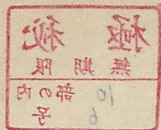 極秘
無期限
部の内
10
号
6